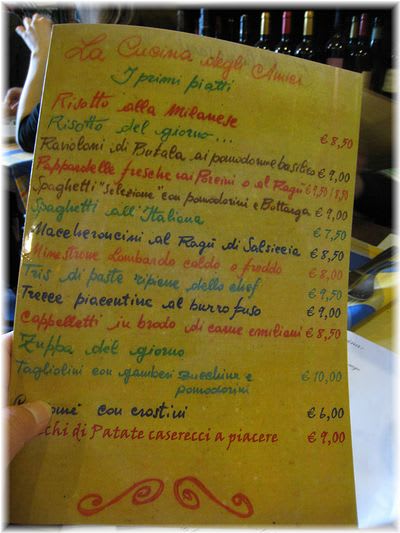 La Cucina degli Amici
I primi piatti
Risotto alla Milanese
Risotto del giorno... € 8,50
Ravioloni di Bufala ai pomodorini e basilico € 9,00
Pappardelle fresche ai Porcini o al Ragù € 9,50/8,50
Spaghetti "selezione" con pomodorini e Bottarga € 9,00
Spaghetti all'Italiana € 7,50
Maccheroncini al Ragù di Salsiccia € 8,50
Minestrone Lombardo caldo o freddo € 8,00
Tris di paste ripiene dello chef € 9,50
Trecce piacentine al burro fuso € 9,00
Cappelletti in brodo di carne emiliani € 8,50
Zuppa del giorno
Tagliolini con gamberi zucchine e pomodorini € 10,00
con crostini € 6,00
di Patate caserecci a piacere € 9,00